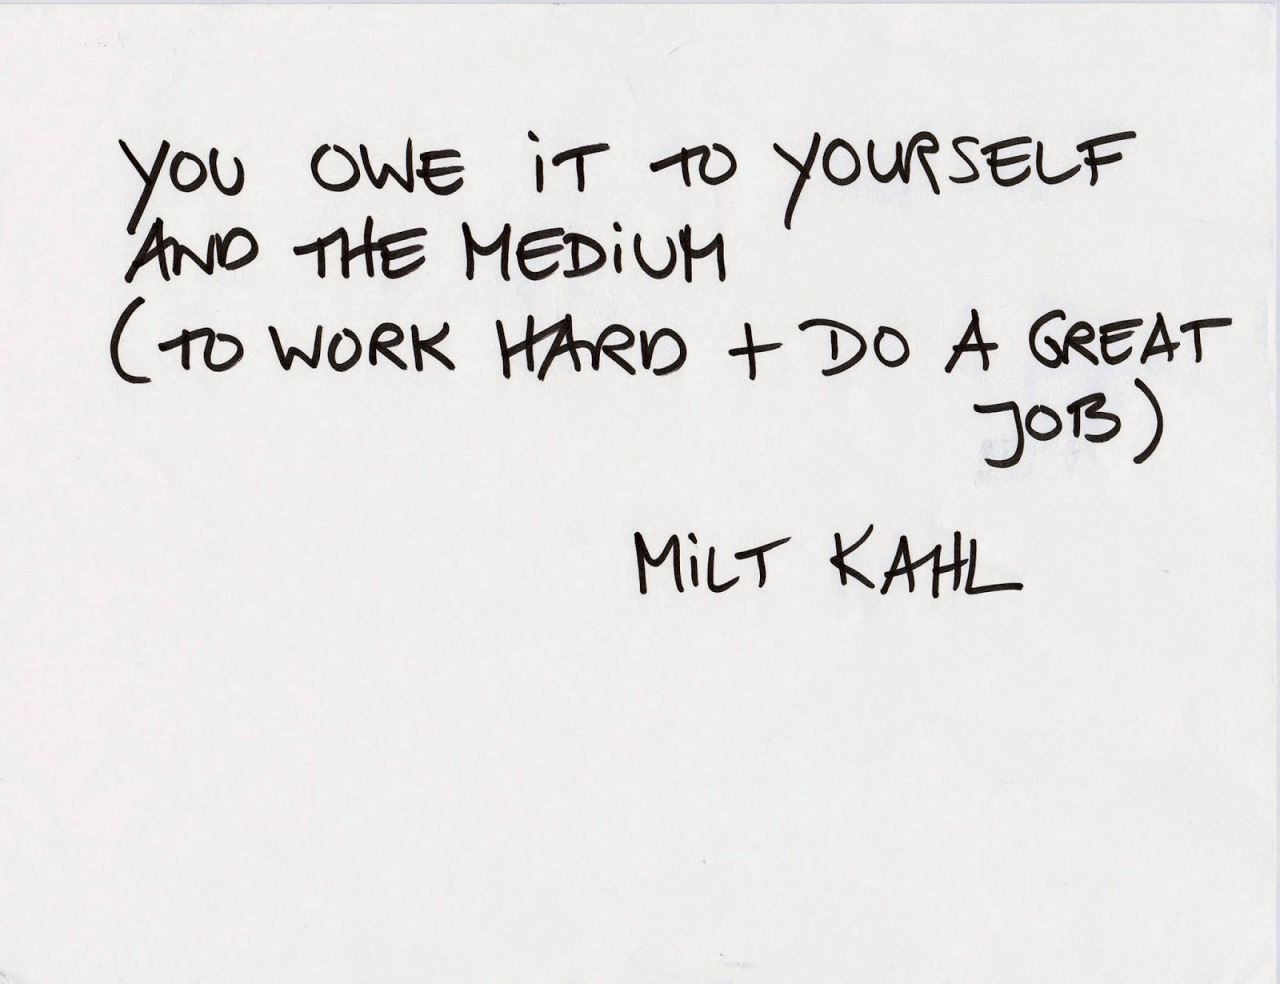 YOU OWE iT TO YOURSELF
AND THE MEDiUM
(TO WORK HARD + DO A GREAT
JOB)
MiLT KAHL